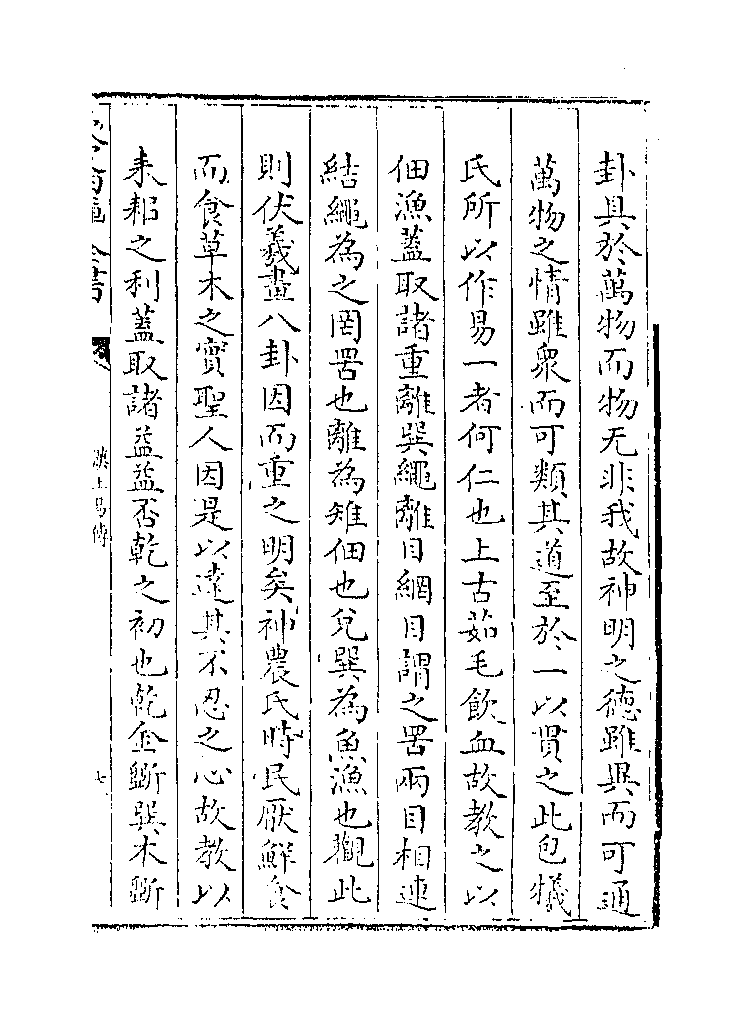 卦具於萬物而物无非我故神明之德雖異而可通
萬物之情雖衆而可類其道至於一以貫之此包犧
氏所以作易一者何仁也上古茹毛飲血故教之以
佃漁蓋取諸重離巽繩離目網目謂之罟兩目相連
結繩為之罔罟也離為雉佃也兌巽為魚漁也觀此
則伏羲畫八卦因而重之明矣神農氏時民厭鮮食
而食草木之實聖人因是以達其不忍之心故教以
耒耜之利蓋取諸益益否乾之初也乾金斵巽木斵
全書
漢上易傳
七